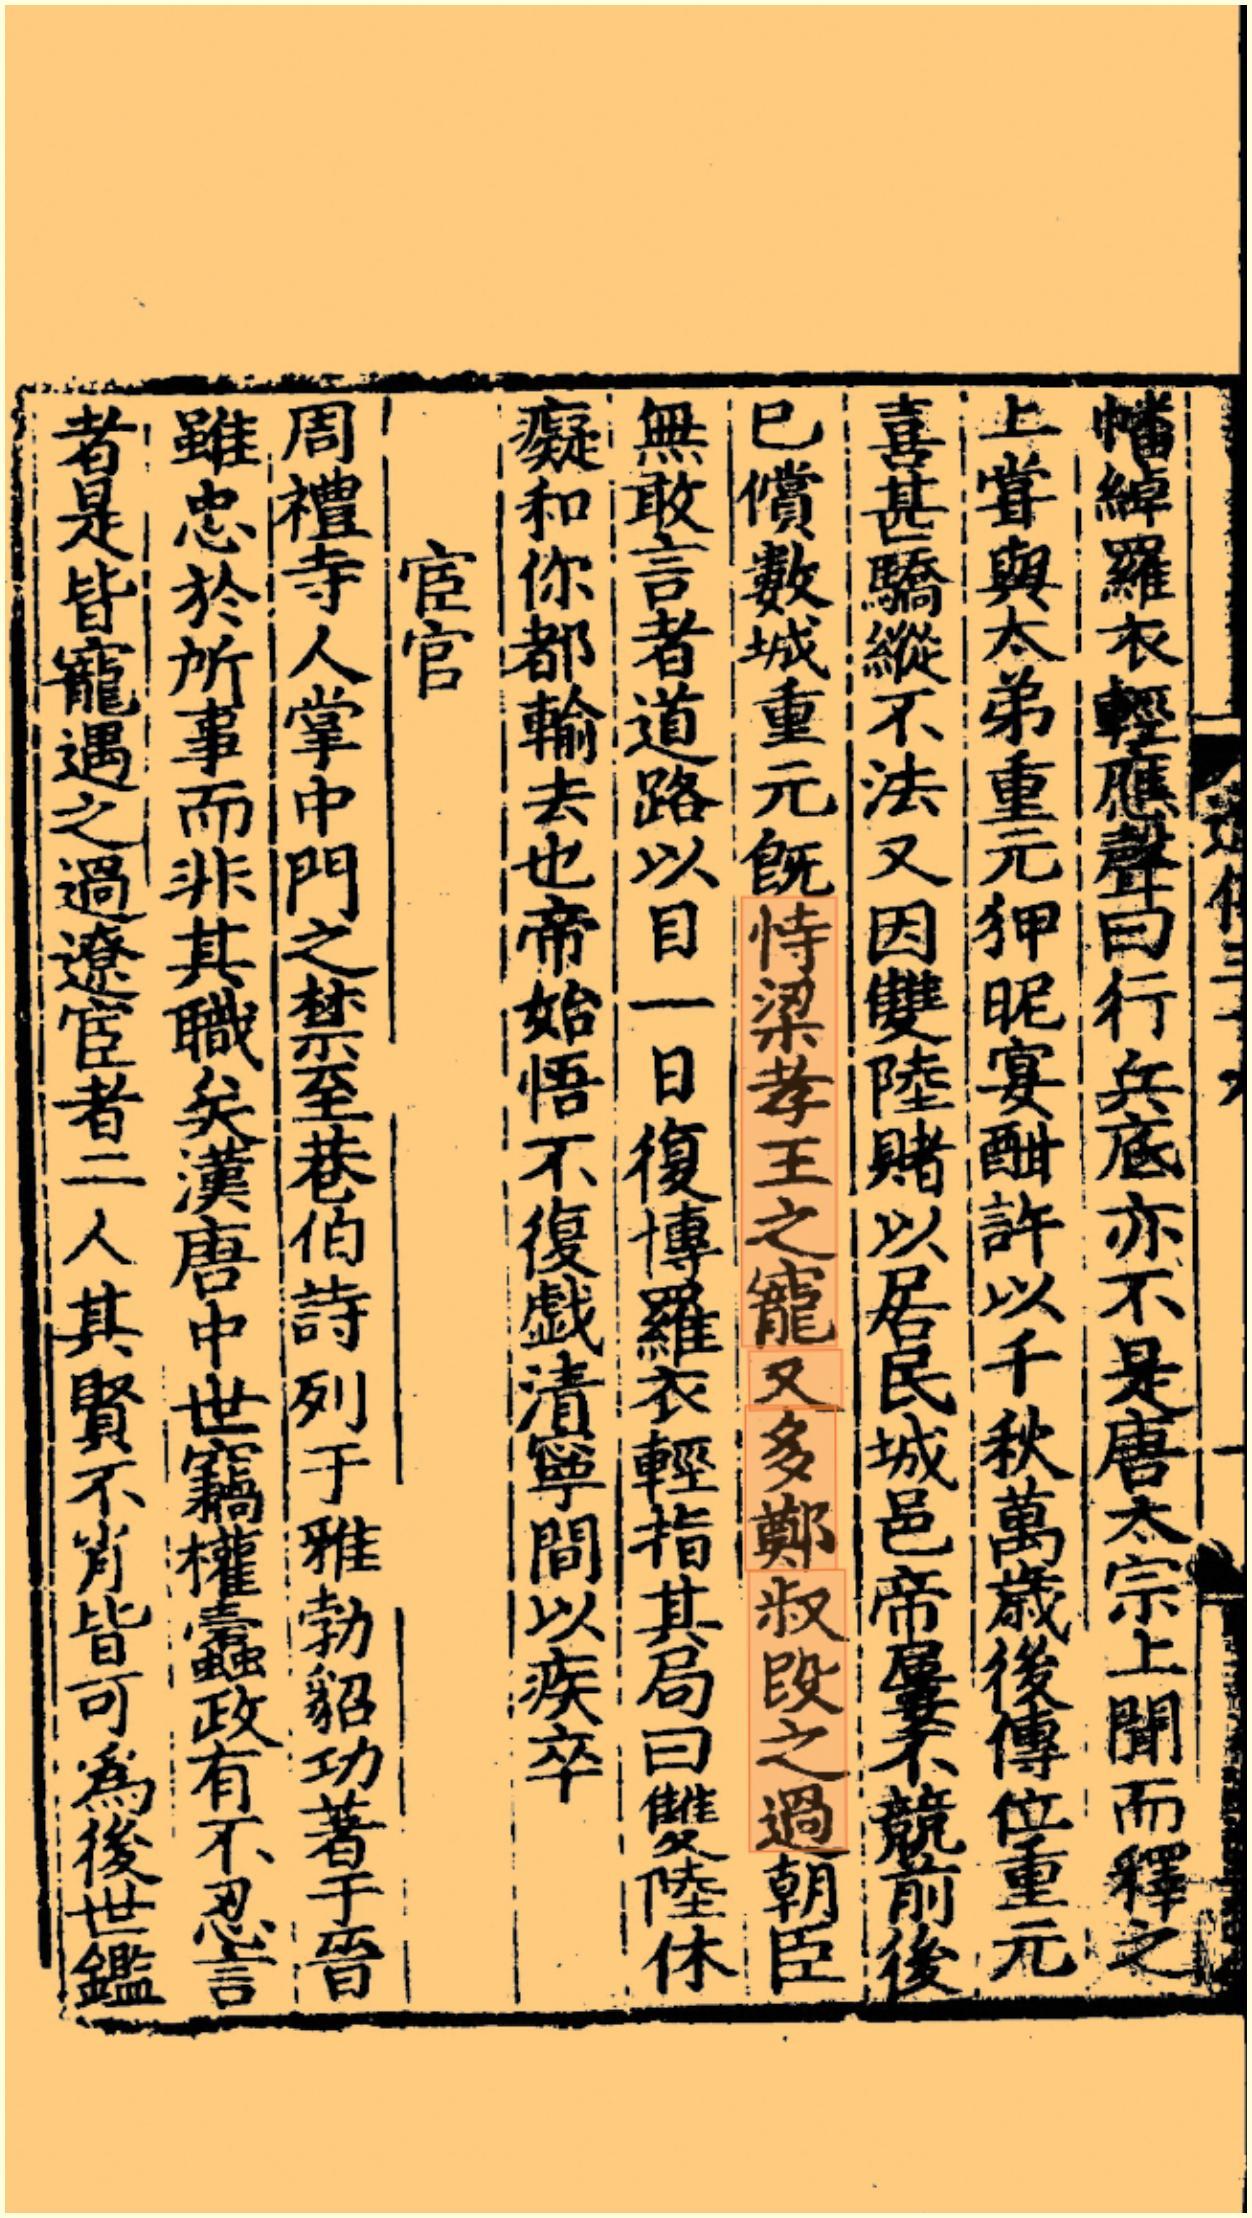 幡綽羅衣輕應聲曰行兵底亦不是唐太宗上聞而釋之
上嘗與太弟重元狎昵宴酣許以千秋萬歲後傳位重元
喜甚驕縱不法又因雙陸賭以居民城邑帝屢不競前後
已償數城重元旣恃梁孝王之寵又多鄭叔段之過朝臣
無敢言者道路以目一日復博羅衣輕指其局曰雙陸休
癡和你都輸去也帝始悟不復戲清寧間以疾卒
宦官
周禮寺人掌中門之禁至巷伯詩列于雅勃貂功著于晉
雖忠於所事而非其職矣漢唐中世竊權蠹政有不忍言
者是皆寵遇之過遼宦者二人其賢不肖皆可爲後世鑑